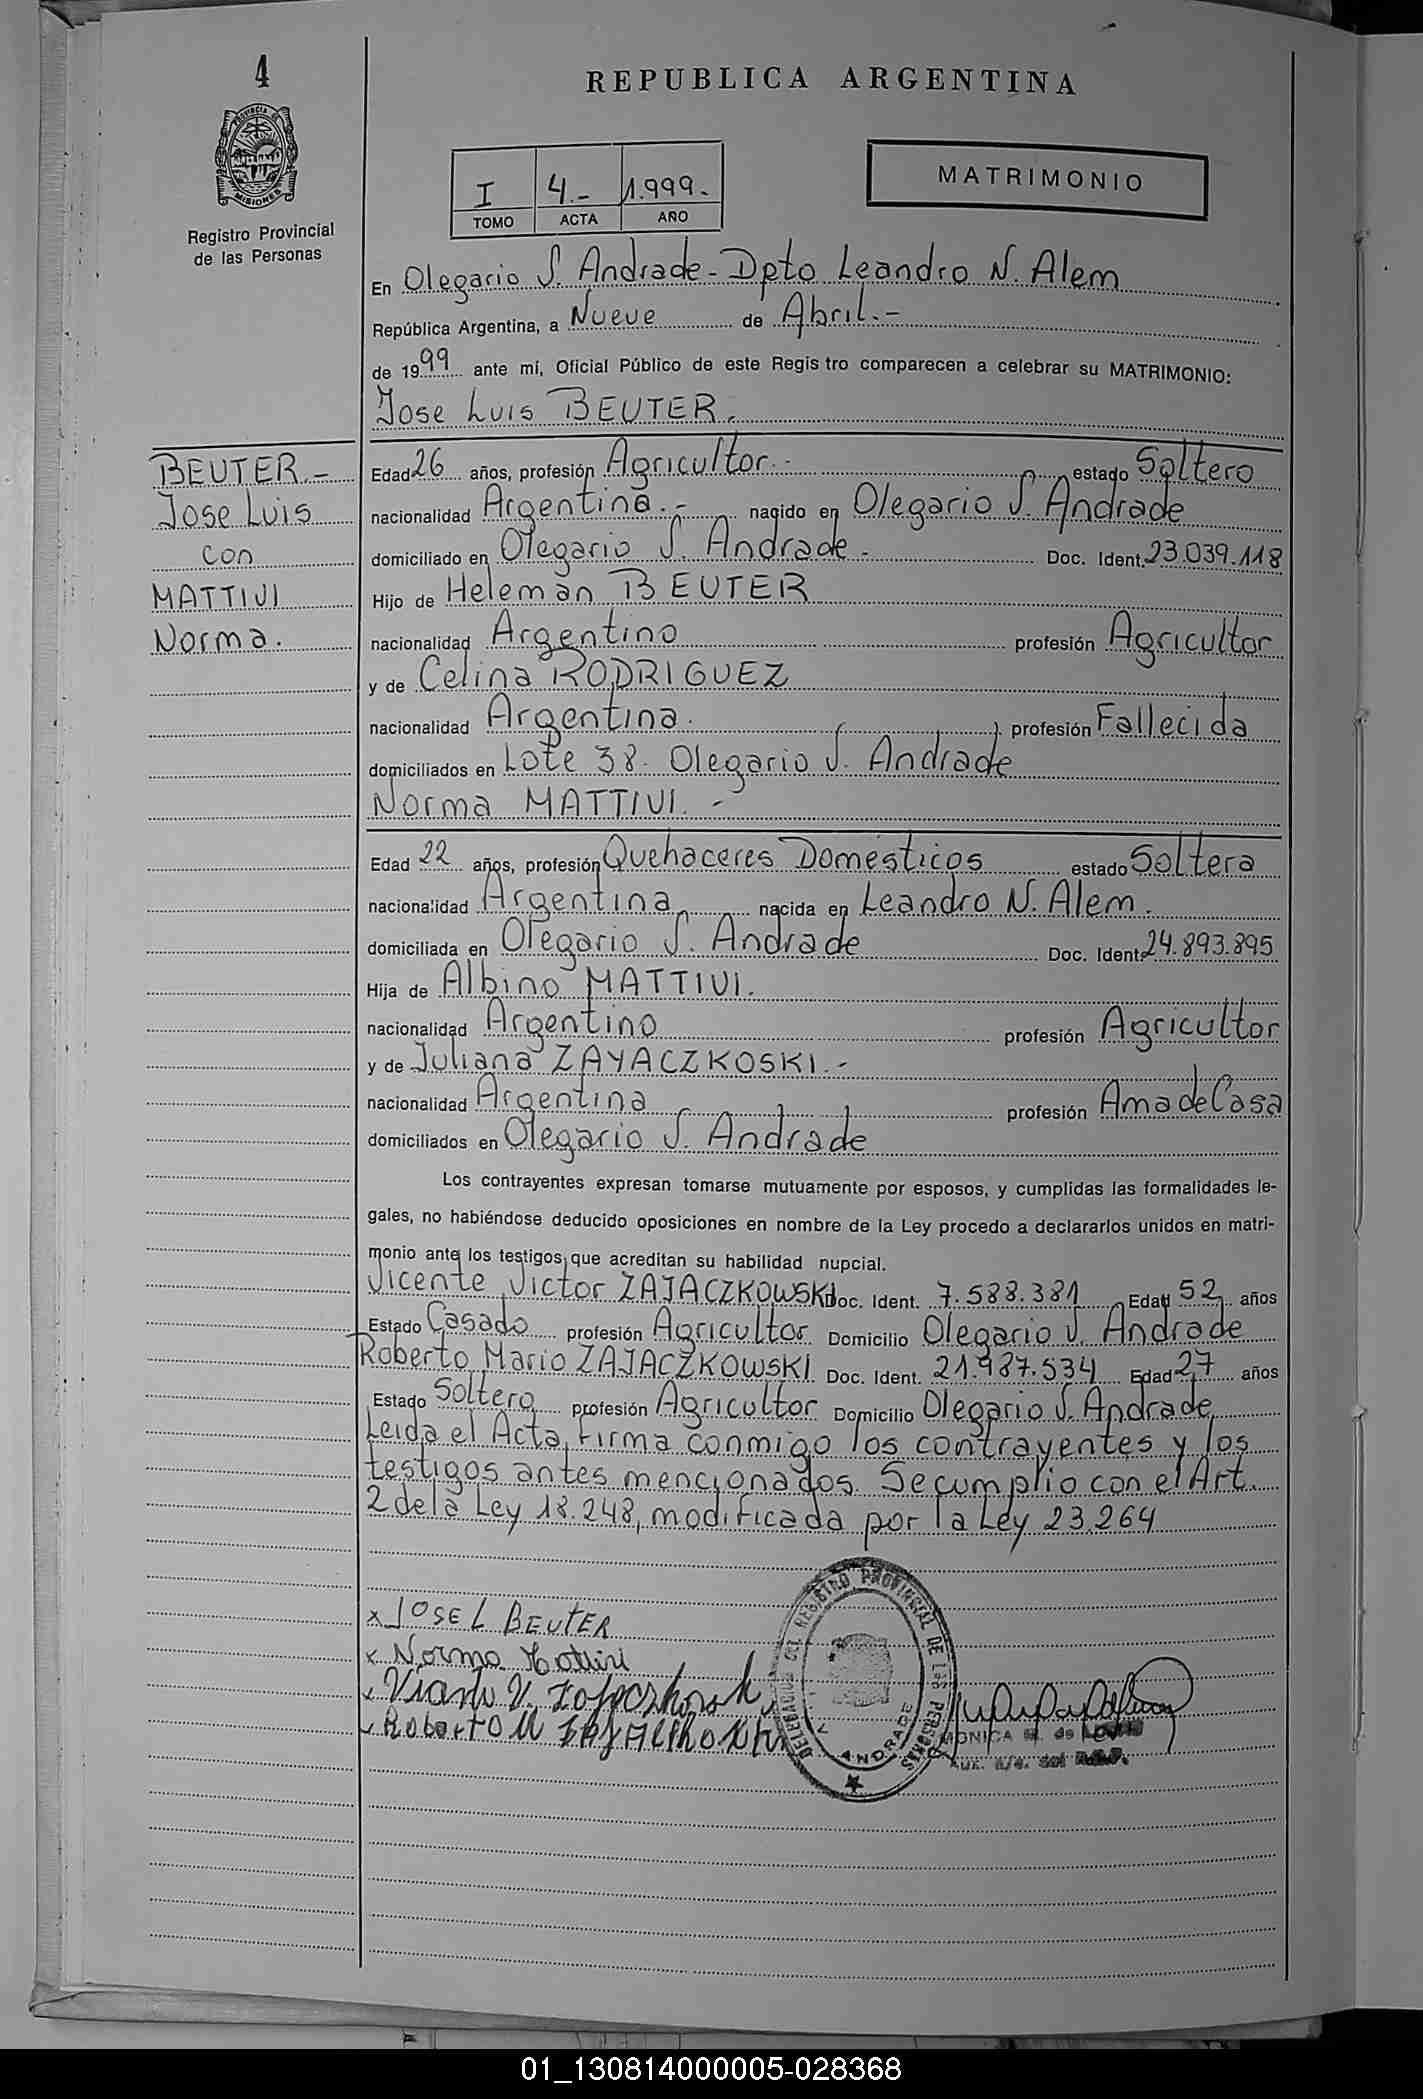 4
REPUBLICA ARGENTINA
PROVINCIA DE
MISIONES
Registro Provincial
de las Personas
I 4.- 1.999.-
TOMO ACTA AÑO
MATRIMONIO
En Olegario V. Andrade - Dpto Leandro N. Alem
República Argentina, a Nueve de Abril.-
de 1999 ante mí, Oficial Público de este Registro comparecen a celebrar su MATRIMONIO:
Jose Luis BEUTER.
BEUTER.-
Jose Luis
con
MATTIVI
Norma.
Edad 26 años, profesión Agricultor.- estado Soltero
nacionalidad Argentina.- nacido en Olegario V. Andrade
domiciliado en Olegario V. Andrade.- Doc. Ident. 23.039.118
Hijo de Heleman BEUTER
nacionalidad Argentino profesión Agricultor
y de Celina RODRIGUEZ
nacionalidad Argentina. profesión Fallecida
domiciliados en Lote 38. Olegario V. Andrade
Norma MATTIVI.-
Edad 22 años, profesión Quehaceres Domésticos estado Soltera
nacionalidad Argentina nacida en Leandro N. Alem.
domiciliada en Olegario V. Andrade Doc. Ident. 24.893.895
Hija de Albino MATTIVI.
nacionalidad Argentino profesión Agricultor
y de Juliana ZAYACZKOSKI.-
nacionalidad Argentina profesión Ama de Casa
domiciliados en Olegario V. Andrade
Los contrayentes expresan tomarse mutuamente por esposos, y cumplidas las formalidades le-
gales, no habiéndose deducido oposiciones en nombre de la Ley procedo a declararlos unidos en matri-
monio ante los testigos que acreditan su habilidad nupcial.
Vicente Victor ZAJACZKOWSKI Doc. Ident. 7.588.381 Edad 52 años
Estado Casado profesión Agricultor Domicilio Olegario V. Andrade
Roberto Mario ZAJACZKOWSKI Doc. Ident. 21.987.534 Edad 27 años
Estado Soltero profesión Agricultor Domicilio Olegario V. Andrade
Leida el Acta, firma conmigo los contrayentes y los
testigos antes mencionados. Se cumplio con el Art.
2 de la Ley 18.248, modificada por la Ley 23.264
x JOSE L BEUTER
x Norma Mattivi
x V.
x Roberto M
DELEGACION DEL REGISTRO PROVINCIAL DE LAS PERSONAS
ANDRADE
MONICA de
01_130814000005-028368